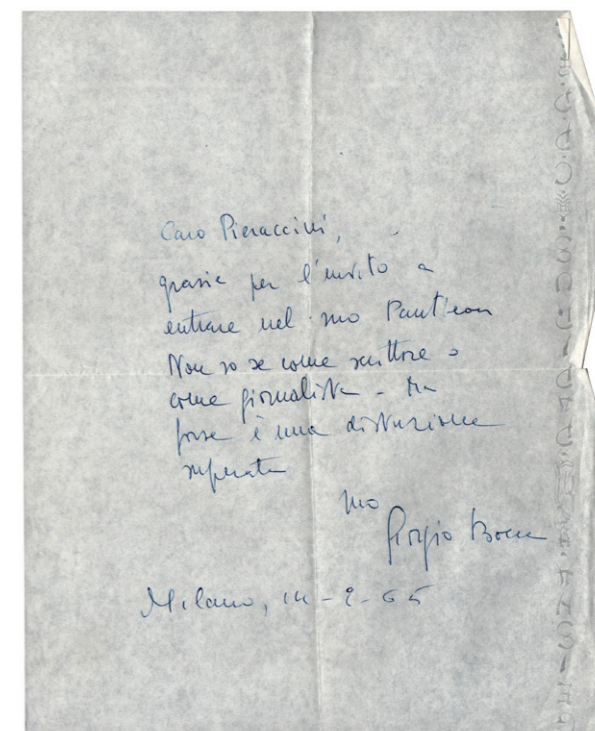 Caro Pieraccini,
grazie per l'invito a
entrare nel suo Panteon
Non so se come scrittore o
come giornalista - Ma
forse è una distinzione
superata
suo
Giorgio Bocca
Milano, 14-9-65